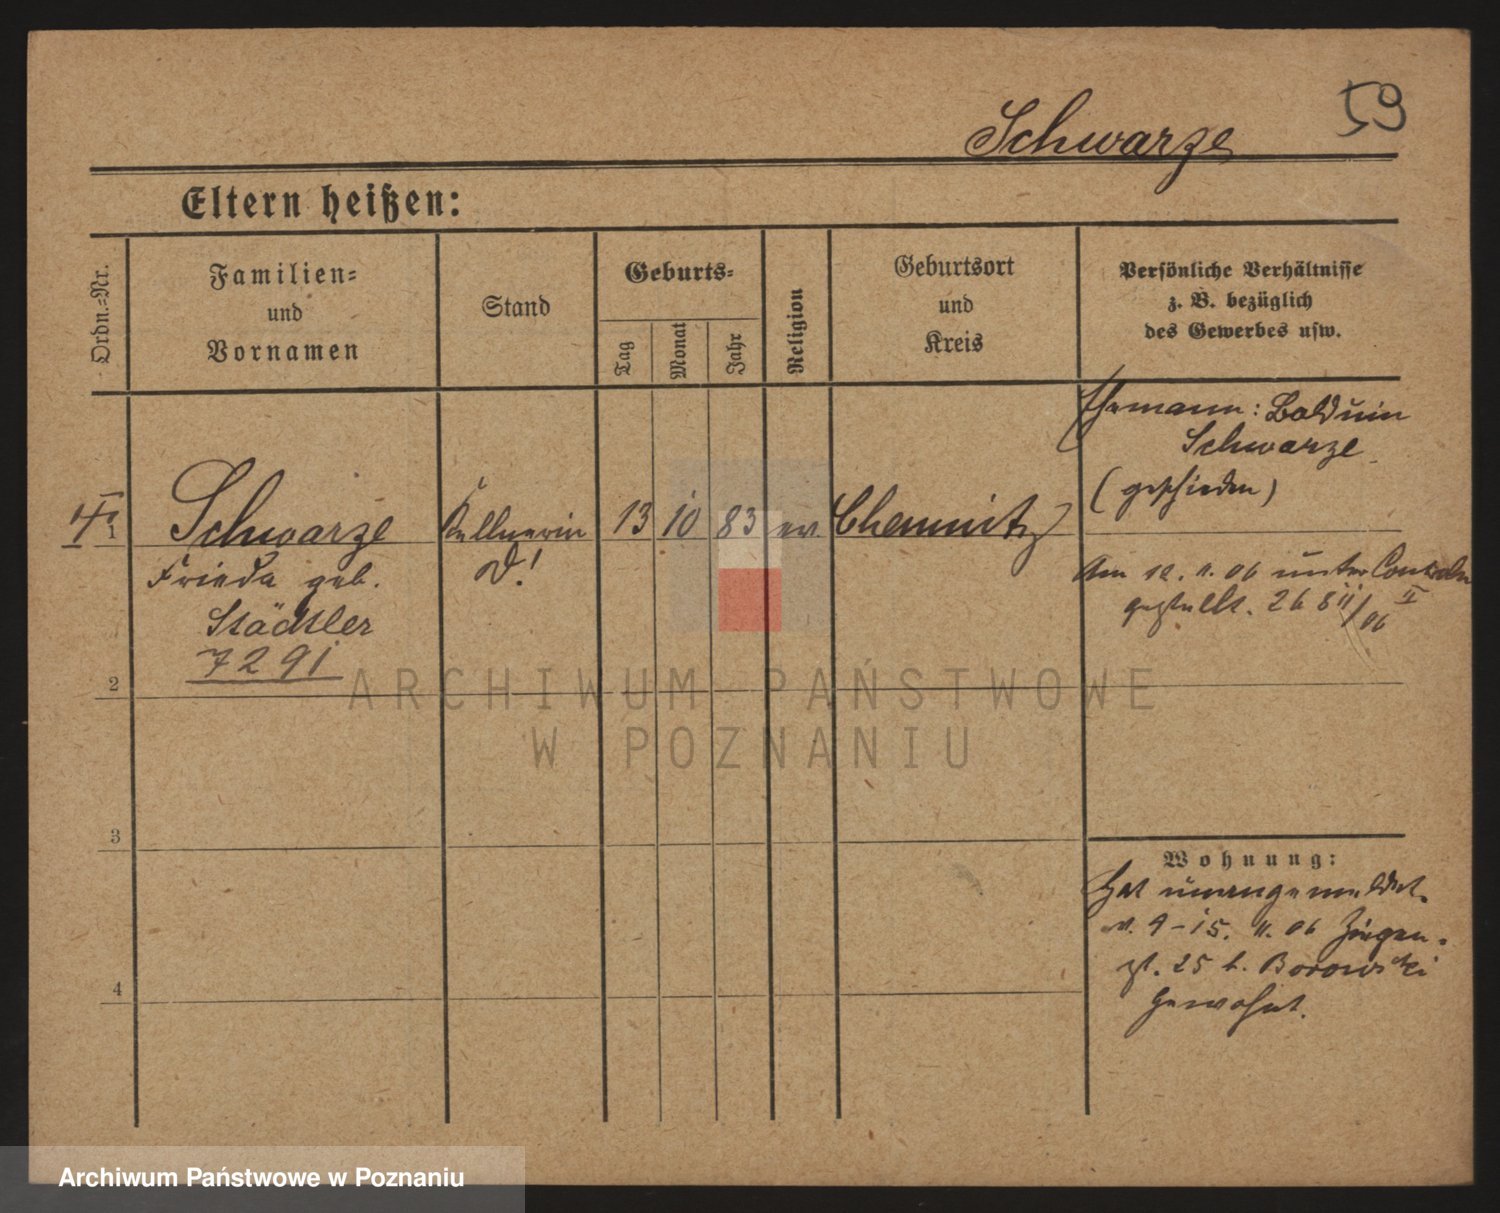 59
Schwarze
Eltern heißen:
Ordn.-Nr.
Familien-
und
Vornamen
Stand
Geburts-
Tag
Monat
Jahr
Religion
Geburtsort
und
Kreis
Persönliche Verhältnisse
z. B. bezüglich
des Gewerbes usw.
Ehemann: Balduin
Schwarze
(geschieden)
1
Schwarze
Kellnerin
13
10
83
ev
Chemnitz
Frieda geb.
D!
Städtler
7291
Am 12. 11. 06 unter Controlle
gestellt. 268 II/06
2
3
4
Wohnung:
Hat unangemeldet
v. 9-15. 11. 06 Ziegen-
st. 25 b. Borowski
gewohnt.
ARCHIWUM PAŃSTWOWE
W POZNANIU
Archiwum Państwowe w Poznaniu